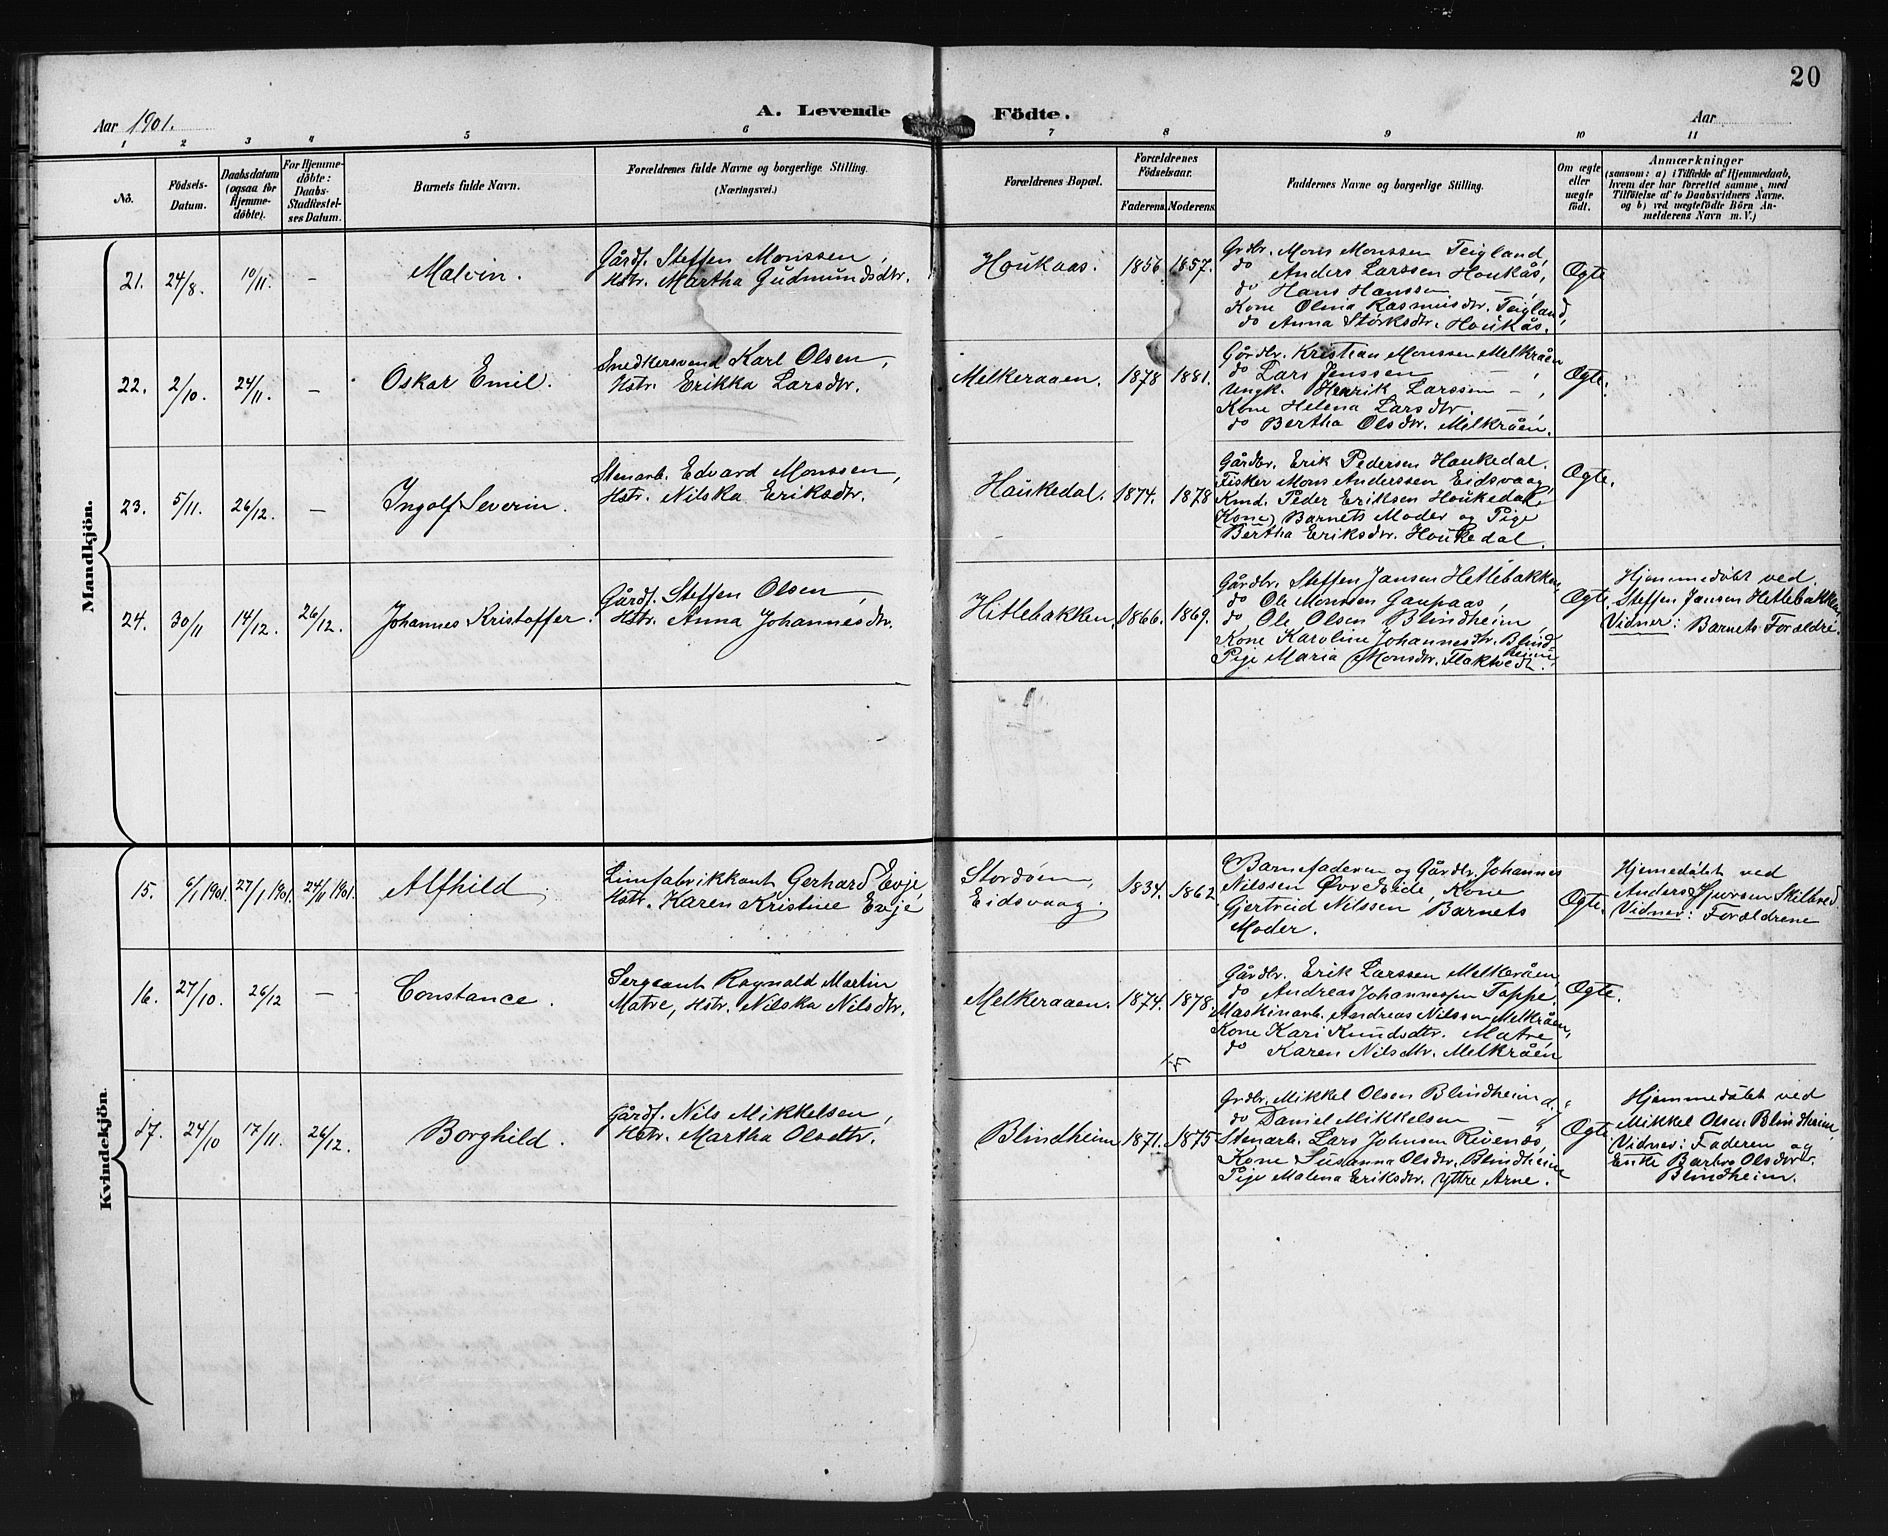 20
A. Levende Födte.
Aar 1901.
Aar
1 2 3 4 5 6 7 8 9 10 11
No.
Födsels-
Datum.
Daabsdatum
(ogsaa for
Hjemme-
döbte).
For Hjemme-
döbte:
Daabs-
Stadfæstel-
ses Datum.
Barnets fulde Navn.
Forældrenes fulde Navne og borgerlige Stilling.
(Næringsvei.)
Forældrenes Bopæl.
Forældrenes
Födselsaar.
Faderens
Moderens
Faddernes Navne og borgerlige Stilling.
Om ægte
eller
uægte
födt.
Anmærkninger
(saasom: a) i Tilfælde af Hjemmedaab,
hvem der har forrettet samme, med
Tilföielse af to Daabsvidners Navne.
og b) ved uægtefödte Börn An-
melderens Navn m. V.)
Mandkjön.
21. 24/8. 10/11. — Malvin.
Gårdf. Steffen Monssen,
Hstr. Martha Gudmundsdtr.
Houkaas. 1856 1857.
Grdbr. Mons Monssen Teigland,
do Anders Larssen Houkås,
do Hans Hanssen —
Kone Olina Rasmusdtr. Teigland,
do Anna Størksdtr. Houkås.
Ægte
22. 2/10. 24/11. — Oskar Emil.
Snedkersvend Karl Olsen,
Hstr. Erikka Larsdtr.
Melkeraaen. 1878 1881.
Gårdbr. Kristian Monssen Melkråen
do Lars Jenssen — ,
Ungk. Henrik Larssen — ,
Kone Helena Larsdtr. — ,
do Bertha Olsdtr. Melkråen.
Ægte.
23. 5/11. 26/12. — Ingolf Severin.
Stenarb. Edvard Monssen,
Hstr. Nilska Eriksdtr.
Haukedal. 1874. 1878
Gårdbr. Erik Pedersen Haukedal.
Fisker Mons Anderssen Eidsvaag,
Kmd. Peder Eriksen Houkedal
(Kone) Barnets Moder og Pige
Bertha Eriksdtr. Houkedal.
Ægte.
24. 30/11 14/12. 26/12. Johannes Kristoffer.
Gårdf. Steffen Olsen,
Hstr. Anna Johannesdtr.
Hitlebakken. 1866. 1869.
Gårdbr. Steffen Jansen Hetlebakken,
do Ole Monssen Gaupaas,
do Ole Olsen Blindheim,
Kone Karoline Johannesdtr. Blind-
heim,
Pige Maria Monsdtr. Flaktvedt.
Ægte.
Hjemmedøbt ved
Steffen Jansen Hetlebakken
Vidner: Barnets Forældre.
Kvindekjön.
15. 6/1 1901. 27/1 1901. 24/11 1901. Alfhild
Limfabrikkant Gerhard Evje,
Hstr. Karen Kristine Evje
Stordøen,
Eidsvaag. 1834. 1862
Barnefaderen og Gårdbr. Johannes
Nilssen Øvre Eide, Kone
Gjertrud Nilssen, Barnets
Moder.
Ægte.
Hjemmedøbt ved
Anders Hjorsen Skilbred
Vidner: Forældrene
16. 27/10. 26/12 — Constance.
Sergeant Ragnald Martin
Matre, Hstr. Nilska Nilsdtr.
Melkeraaen. 1874. 1878.
Gårdbr. Erik Larssen Melkeråen,
do Andreas Johannessen Toppe,
Maskinarb. Andreas Nilssen Melkråen,
Kone Kari Knudsdtr. Matre,
do Karen Nilsdtr. Melkråen
Ægte.
17. 24/10 17/11. 26/12. Borghild.
Gårdf. Nils Mikkelsen,
Hstr. Martha Olsdtr.
Blindheim 1871. 1875
Grdbr. Mikkel Olsen Blindheim,
do Daniel Mikkelsen —
Stenarb. Lars Johnsen Rivenæs,
Kone Susanna Olsdtr. Blindheim
Pige Malena Eriksdtr. Yttre Arne.
Ægte
Hjemmedøbt ved
Mikkel Olsen Blindheim,
Vidner: Faderen og
Enke Barbro Olsdtr.
Blindheim.